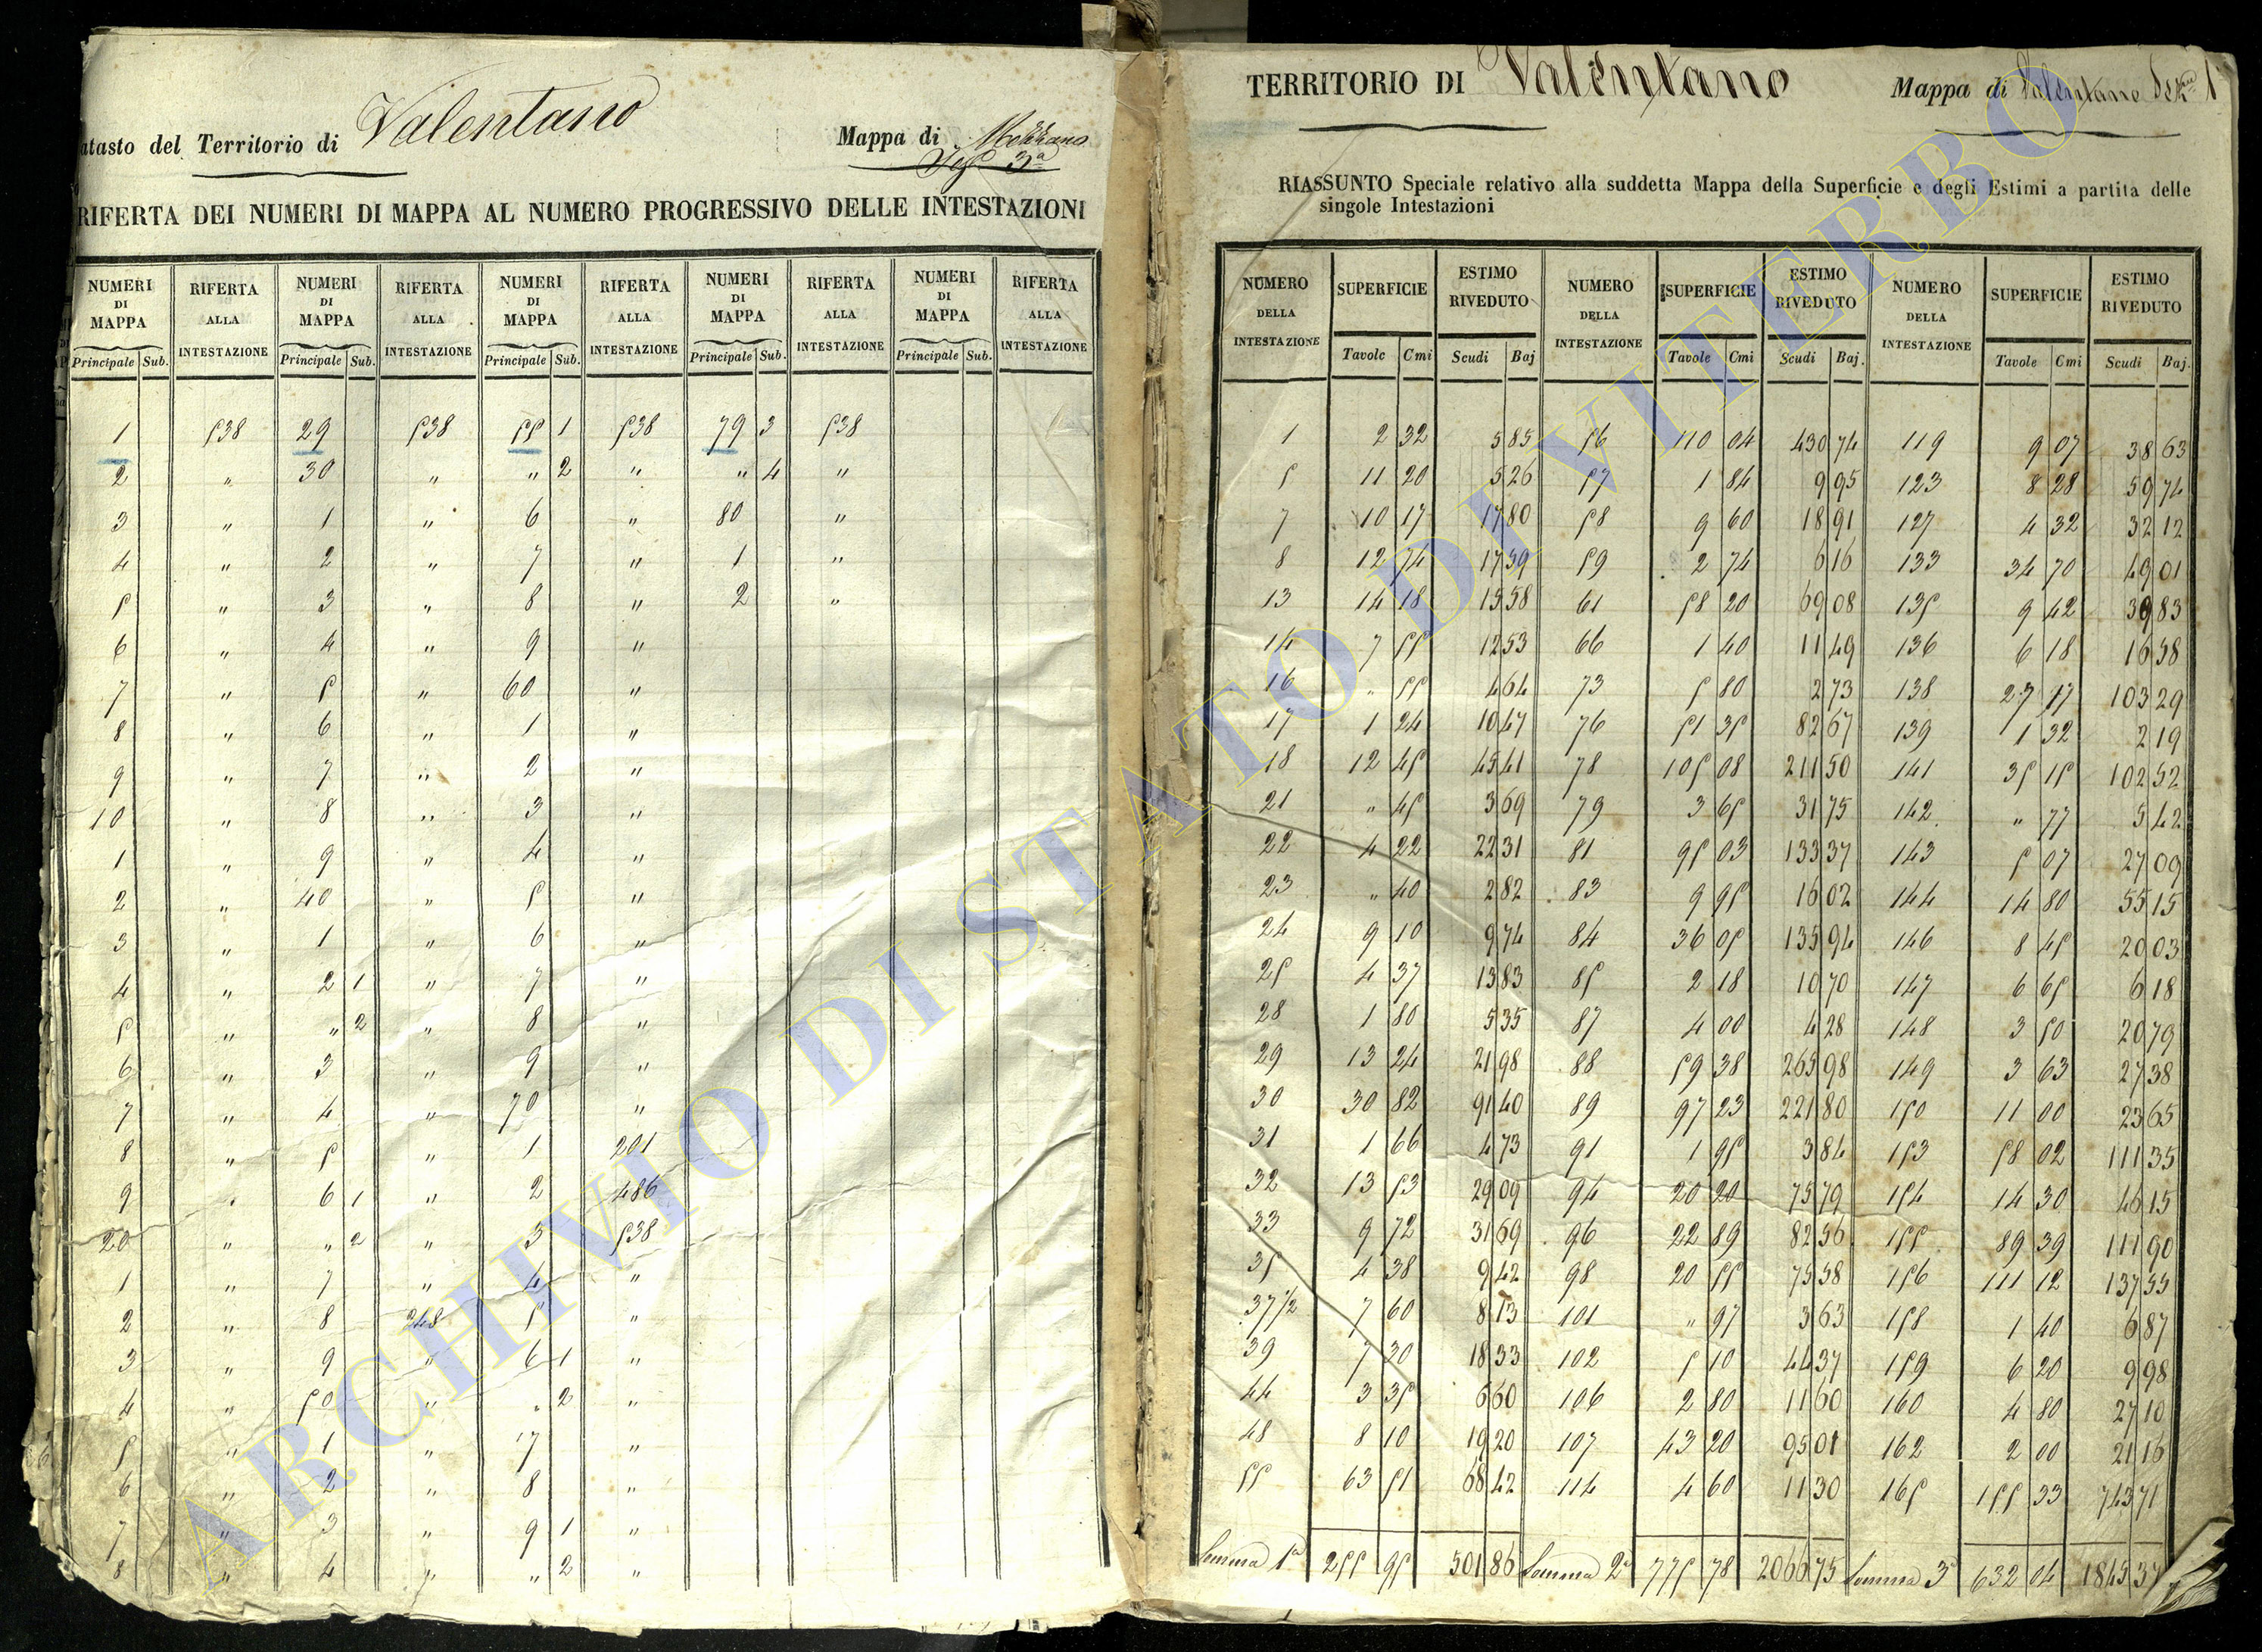 atasto del Territorio di Valentano Mappa di Mezzano
Sez. 3ª
RIFERTA DEI NUMERI DI MAPPA AL NUMERO PROGRESSIVO DELLE INTESTAZIONI
NUMERI DI MAPPA RIFERTA ALLA INTESTAZIONE NUMERI DI MAPPA RIFERTA ALLA INTESTAZIONE NUMERI DI MAPPA RIFERTA ALLA INTESTAZIONE NUMERI DI MAPPA RIFERTA ALLA INTESTAZIONE NUMERI DI MAPPA RIFERTA ALLA INTESTAZIONE
Principale Sub. Principale Sub. Principale Sub. Principale Sub. Principale Sub.
1 538 29 538 55 1 538 79 3 538
2 " 30 " " 2 " " 4 "
3 " 1 " 6 " 80 "
4 " 2 " 7 " 1 "
5 " 3 " 8 " 2 "
6 " 4 " 9 "
7 " 5 " 60 "
8 " 6 " 1 "
9 " 7 " 2 "
10 " 8 " 3 "
1 " 9 " 4 "
2 " 40 " 5 "
3 " 1 " 6 "
4 " 2 1 " 7 "
5 " " 2 " 8 "
6 " 3 " 9 "
7 " 4 " 70 "
8 " 5 " 1 201
9 " 6 1 " 2 486
20 " " 2 " 3 538
1 " 7 " 4 "
2 " 8 248 5 "
3 " 9 " 6 1 "
4 " 50 " " 2 "
5 " 1 " 7 "
6 " 2 " 8 "
7 " 3 " 9 1 "
8 " 4 " " 2 "
TERRITORIO DI Valentano Mappa di Valentano Sez.ne 1
RIASSUNTO Speciale relativo alla suddetta Mappa della Superficie e degli Estimi a partita delle
singole Intestazioni
NUMERO DELLA INTESTAZIONE SUPERFICIE ESTIMO RIVEDUTO NUMERO DELLA INTESTAZIONE SUPERFICIE ESTIMO RIVEDUTO NUMERO DELLA INTESTAZIONE SUPERFICIE ESTIMO RIVEDUTO
Tavole Cmi Scudi Baj Tavole Cmi Scudi Baj. Tavole Cmi Scudi Baj.
1 2 32 5 85 56 110 04 430 74 119 9 07 38 63
5 11 20 5 26 57 1 84 9 95 123 8 28 59 74
7 10 17 17 80 58 9 60 18 91 127 4 32 32 12
8 12 74 17 59 59 2 74 6 16 133 34 70 49 01
13 14 18 15 58 61 58 20 69 08 135 9 42 39 83
14 7 55 12 53 66 1 40 11 49 136 6 18 16 58
16 " 55 4 64 73 5 80 2 73 138 27 17 103 29
17 1 24 10 47 76 51 35 82 67 139 1 32 2 19
18 12 45 45 41 78 105 08 211 50 141 35 15 102 52
21 " 45 3 69 79 3 65 31 75 142 " 77 5 42
22 4 22 22 31 81 95 03 133 37 143 5 07 27 09
23 " 40 2 82 83 9 95 16 02 144 14 80 55 15
24 9 10 9 74 84 36 05 135 94 146 8 45 20 03
25 4 37 13 83 85 2 18 10 70 147 6 65 6 18
28 1 80 5 35 87 4 00 4 28 148 3 50 20 79
29 13 24 21 98 88 59 38 265 98 149 3 63 27 38
30 30 82 91 40 89 97 23 221 80 150 11 00 23 65
31 1 66 4 73 91 1 95 3 84 153 58 02 111 35
32 13 53 29 09 94 20 20 75 79 154 14 30 46 15
33 9 72 31 69 96 22 89 82 56 155 89 39 111 90
35 4 38 9 42 98 20 55 75 58 156 111 12 137 55
37 1/2 7 60 8 13 101 " 97 3 63 158 1 40 6 87
39 7 30 18 33 102 5 10 44 37 159 6 20 9 98
44 3 35 6 60 106 2 80 11 60 160 4 80 27 10
48 8 10 19 20 107 43 20 95 01 162 2 00 21 16
55 63 51 68 42 114 4 60 11 30 165 155 33 743 71
Somma 1ª 255 95 501 86 Somma 2ª 775 78 2066 75 Somma 3ª 632 04 1845 37
ARCHIVIO DI STATO DI VITERBO